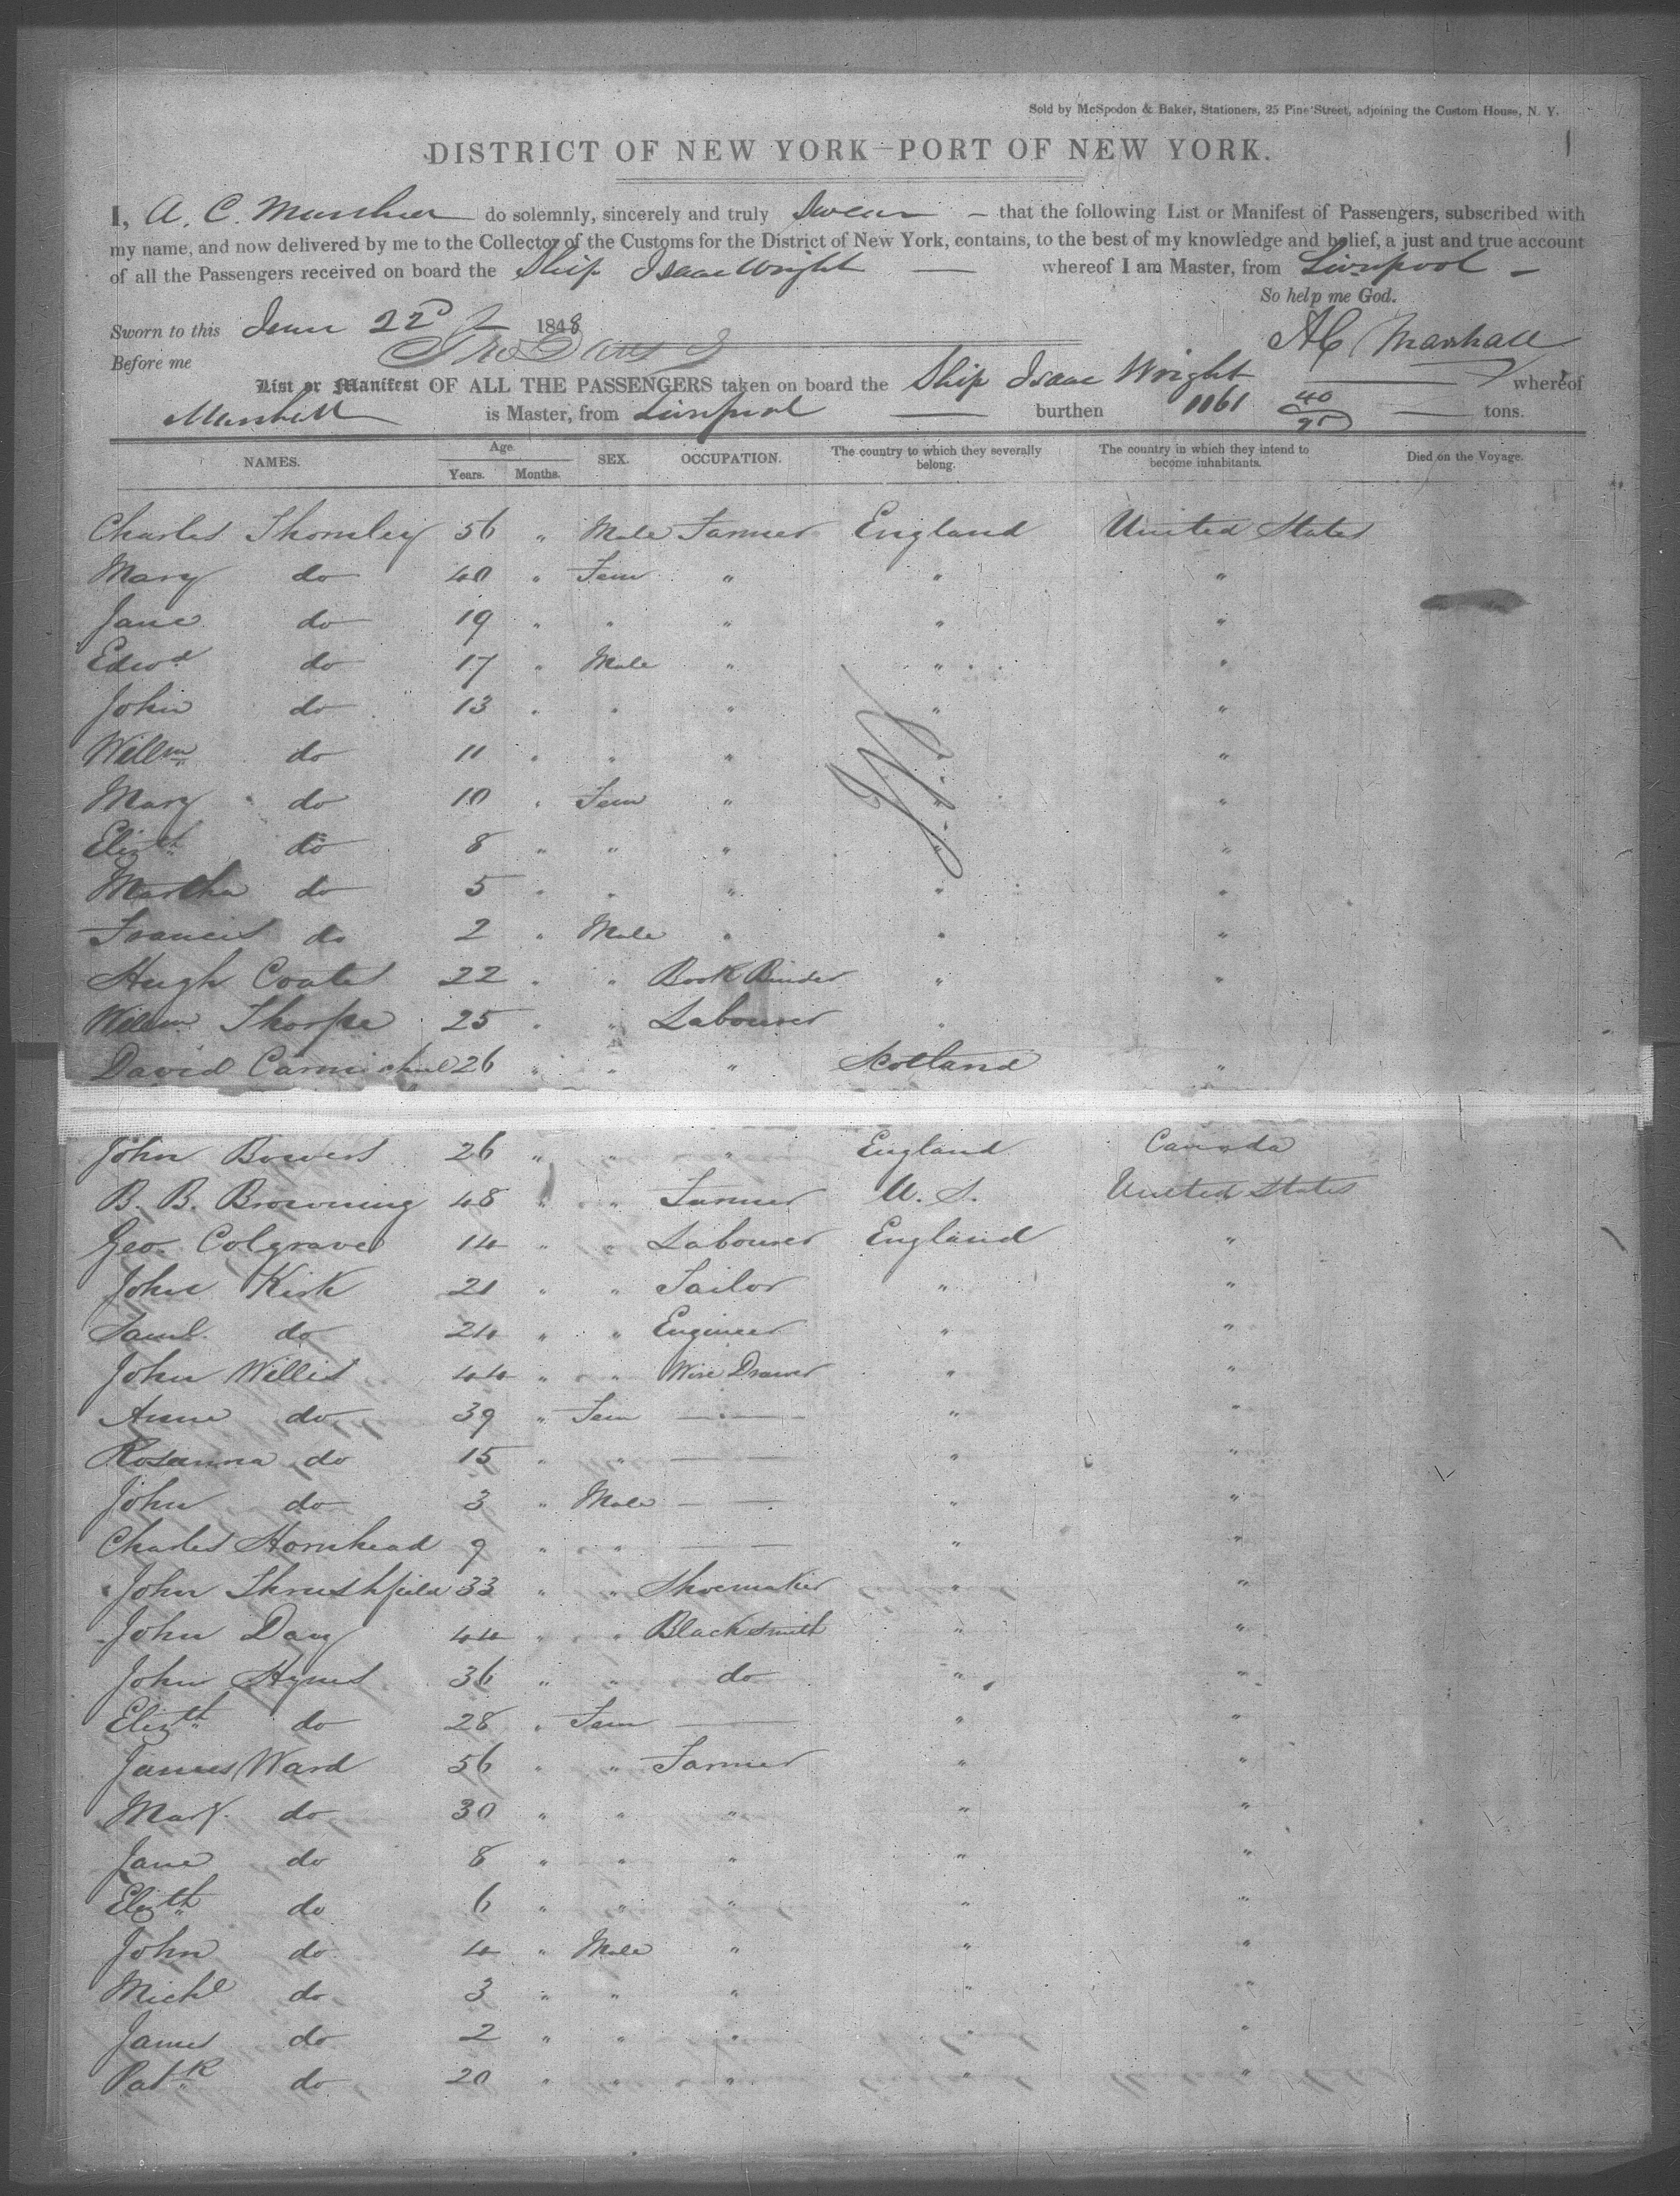 Sold by McSpedon & Baker, Stationers, 25 Pine Street, adjoining the Custom House, N. Y.
1
DISTRICT OF NEW YORK—PORT OF NEW YORK.
I, A. C. Marshall do solemnly, sincerely and truly Swear – that the following List or Manifest of Passengers, subscribed with
my name, and now delivered by me to the Collector of the Customs for the District of New York, contains, to the best of my knowledge and belief, a just and true account
of all the Passengers received on board the Ship Isaac Wright — whereof I am Master, from Liverpool –
So help me God.
Sworn to this June 22d 1848
A C Marshall
Before me
List or Manifest OF ALL THE PASSENGERS taken on board the Ship Isaac Wright — whereof
Marshall is Master, from Liverpool — burthen 1161 40/95 — tons.
NAMES. Age. SEX. OCCUPATION. The country to which they severally belong. The country in which they intend to become inhabitants. Died on the Voyage.
Years. Months.
Charles Thornley 56 " Male Farmer England United States
Mary do 40 " Fem " " "
Jane do 19 " " " " "
Edwd do 17 " Male " " "
John do 13 " " " " "
Willm do 11 " " " " "
Mary do 10 " Fem " " "
Elizth do 8 " " " " "
Martha do 5 " " " " "
Francis do 2 " Male " " "
Hugh Coates 22 " " Book Binder " "
Willm Thorpe 25 " " Labourer "
David Carmichael 26 " " " Scotland "
John Bowers 26 " " " England Canada
B. B. Browning 48 " " Farmer U. S. United States
Geo. Colgrave 14 " " Labourer England "
John Kirk 21 " " Tailor " "
Saml. do 24 " " Engineer " "
John Willis 44 " " Wire Drawer " "
Anne do 39 " Fem — " "
Rosanna do 15 " " — " "
John do 3 " Male — " "
Charles Hornhead 9 " " — " "
John Thrushfield 33 " " Shoemaker " "
John Day 44 " " Blacksmith " "
John Hynes 36 " " do " "
Elizth do 28 " Fem — " "
James Ward 56 " " Farmer " "
Mary do 30 " " " " "
Jane do 8 " " " " "
Elizth do 6 " " " " "
John do 4 " Male " " "
Michl do 3 " " " " "
James do 2 " " " " "
Patk do 20 " " " " "